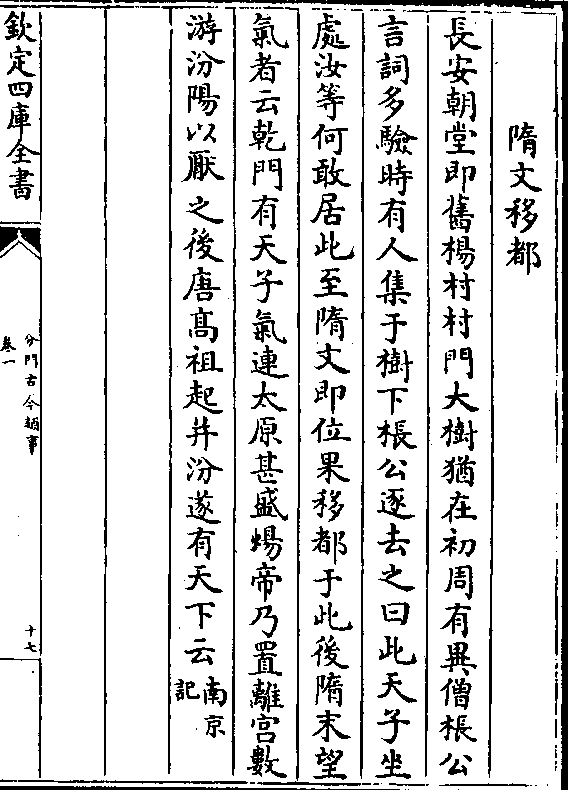 隋文移都
長安朝堂即舊楊村村門大樹猶在初周有異僧棖公
言詞多驗時有人集于樹下棖公逐去之曰此天子坐
處汝等何敢居此至隋文即位果移都于此後隋末望
氣者云乾門有天子氣連太原甚盛煬帝乃置離宮數
游汾陽以厭之後唐髙祖起并汾遂有天下云南京
記
欽定四庫全書
分門古今類事
卷一
十七